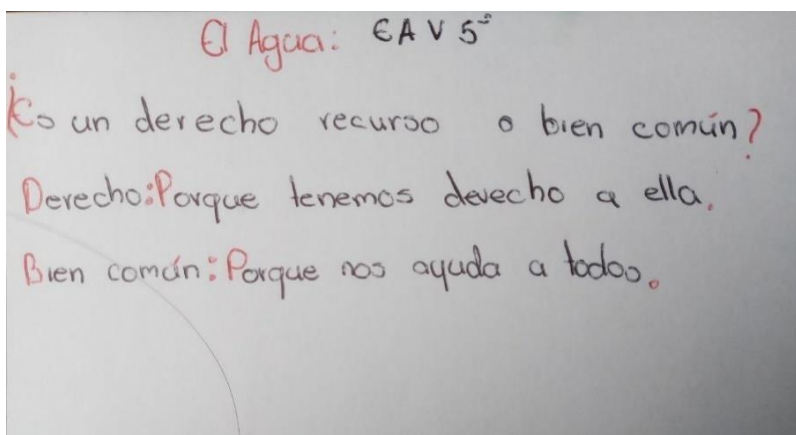 El Agua: EAV 5º
¿Es un derecho recurso o bien común?
Derecho: Porque tenemos derecho a ella.
Bien común: Porque nos ayuda a todos.